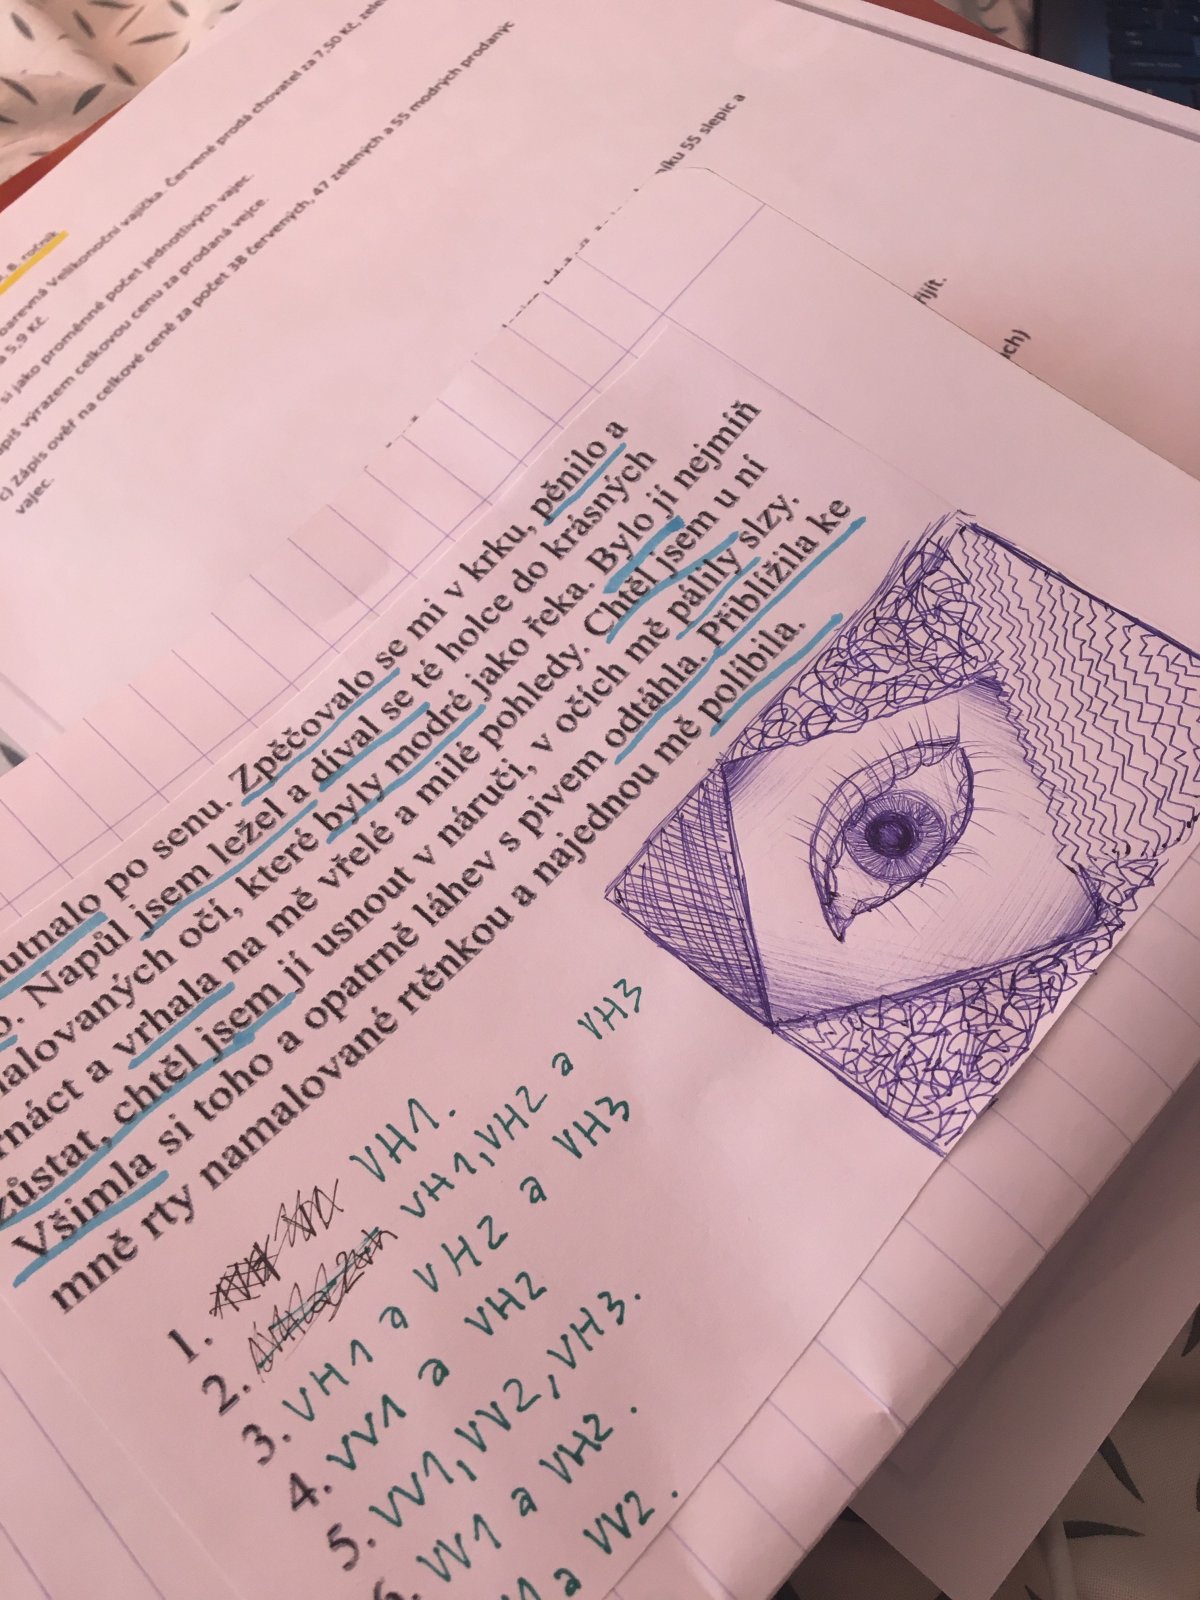 8. ročník
barevná Velikonoční vajíčka. Červené prodá chovatel za 7,50 Kč, zele
a 5,9 Kč.
si jako proměnné počet jednotlivých vajec.
výrazem celkovou cenu za prodaná vejce.
c) Zápis ověř na celkové ceně za počet 38 červených, 47 zelených a 55 modrých prodanýc
vajec.
55 slepic a
utnalo po senu. Zpěčovalo se mi v krku, pěnilo a
o. Napůl jsem ležel a díval se té holce do krásných
malovaných očí, které byly modré jako řeka. Bylo jí nejmíň
rnáct a vrhala na mě vřelé a milé pohledy. Chtěl jsem u ní
zůstat, chtěl jsem jí usnout v náručí, v očích mě pálily slzy.
Všimla si toho a opatrně láhev s pivem odtáhla. Přiblížila ke
mně rty namalované rtěnkou a najednou mě políbila.
1. VH1.
2. VH1, VH2 a VH3
3. VH1 a VH2 a VH3
4. VV1 a VH2
5. VV1, VV2, VH3.
6. VV1 a VH2.
a VV2.